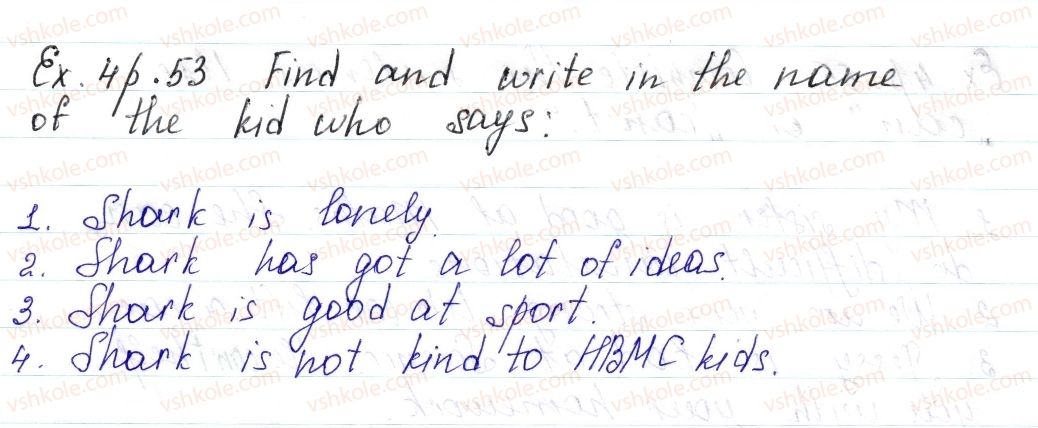 Ex. 4p.53 Find and write in the name
of the kid who says:
1. Shark is lonely.
2. Shark has got a lot of ideas.
3. Shark is good at sport.
4. Shark is not kind to HBMC kids.